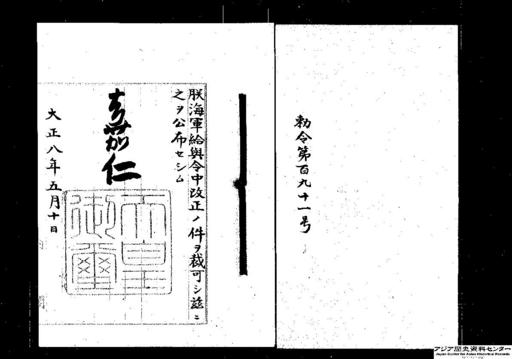 勅令第百九十一号
朕海軍給與令中改正ノ件ヲ裁可シ茲ニ
之ヲ公布セシム
嘉仁
天皇
御璽
大正八年五月十日
アジア歴史資料センター
Japan Center for Asian Historical Records